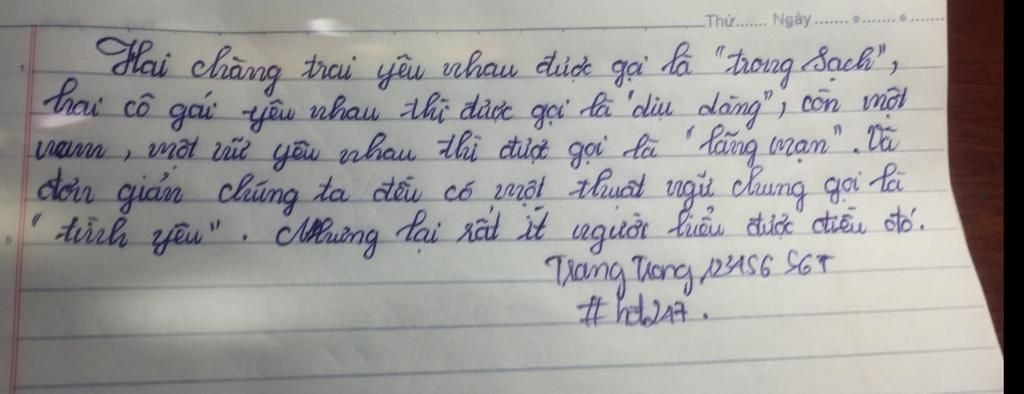 Thứ....... Ngày.......
Hai chàng trai yêu nhau được gọi là "trong sạch",
hai cô gái yêu nhau thì được gọi là "dịu dàng", còn một
nam, một nữ yêu nhau thì được gọi là "lãng mạn". Và
đơn giản chúng ta đều có một thuật ngữ chung gọi là
"tình yêu". Nhưng lại rất ít người hiểu được điều đó.
Trang Trang